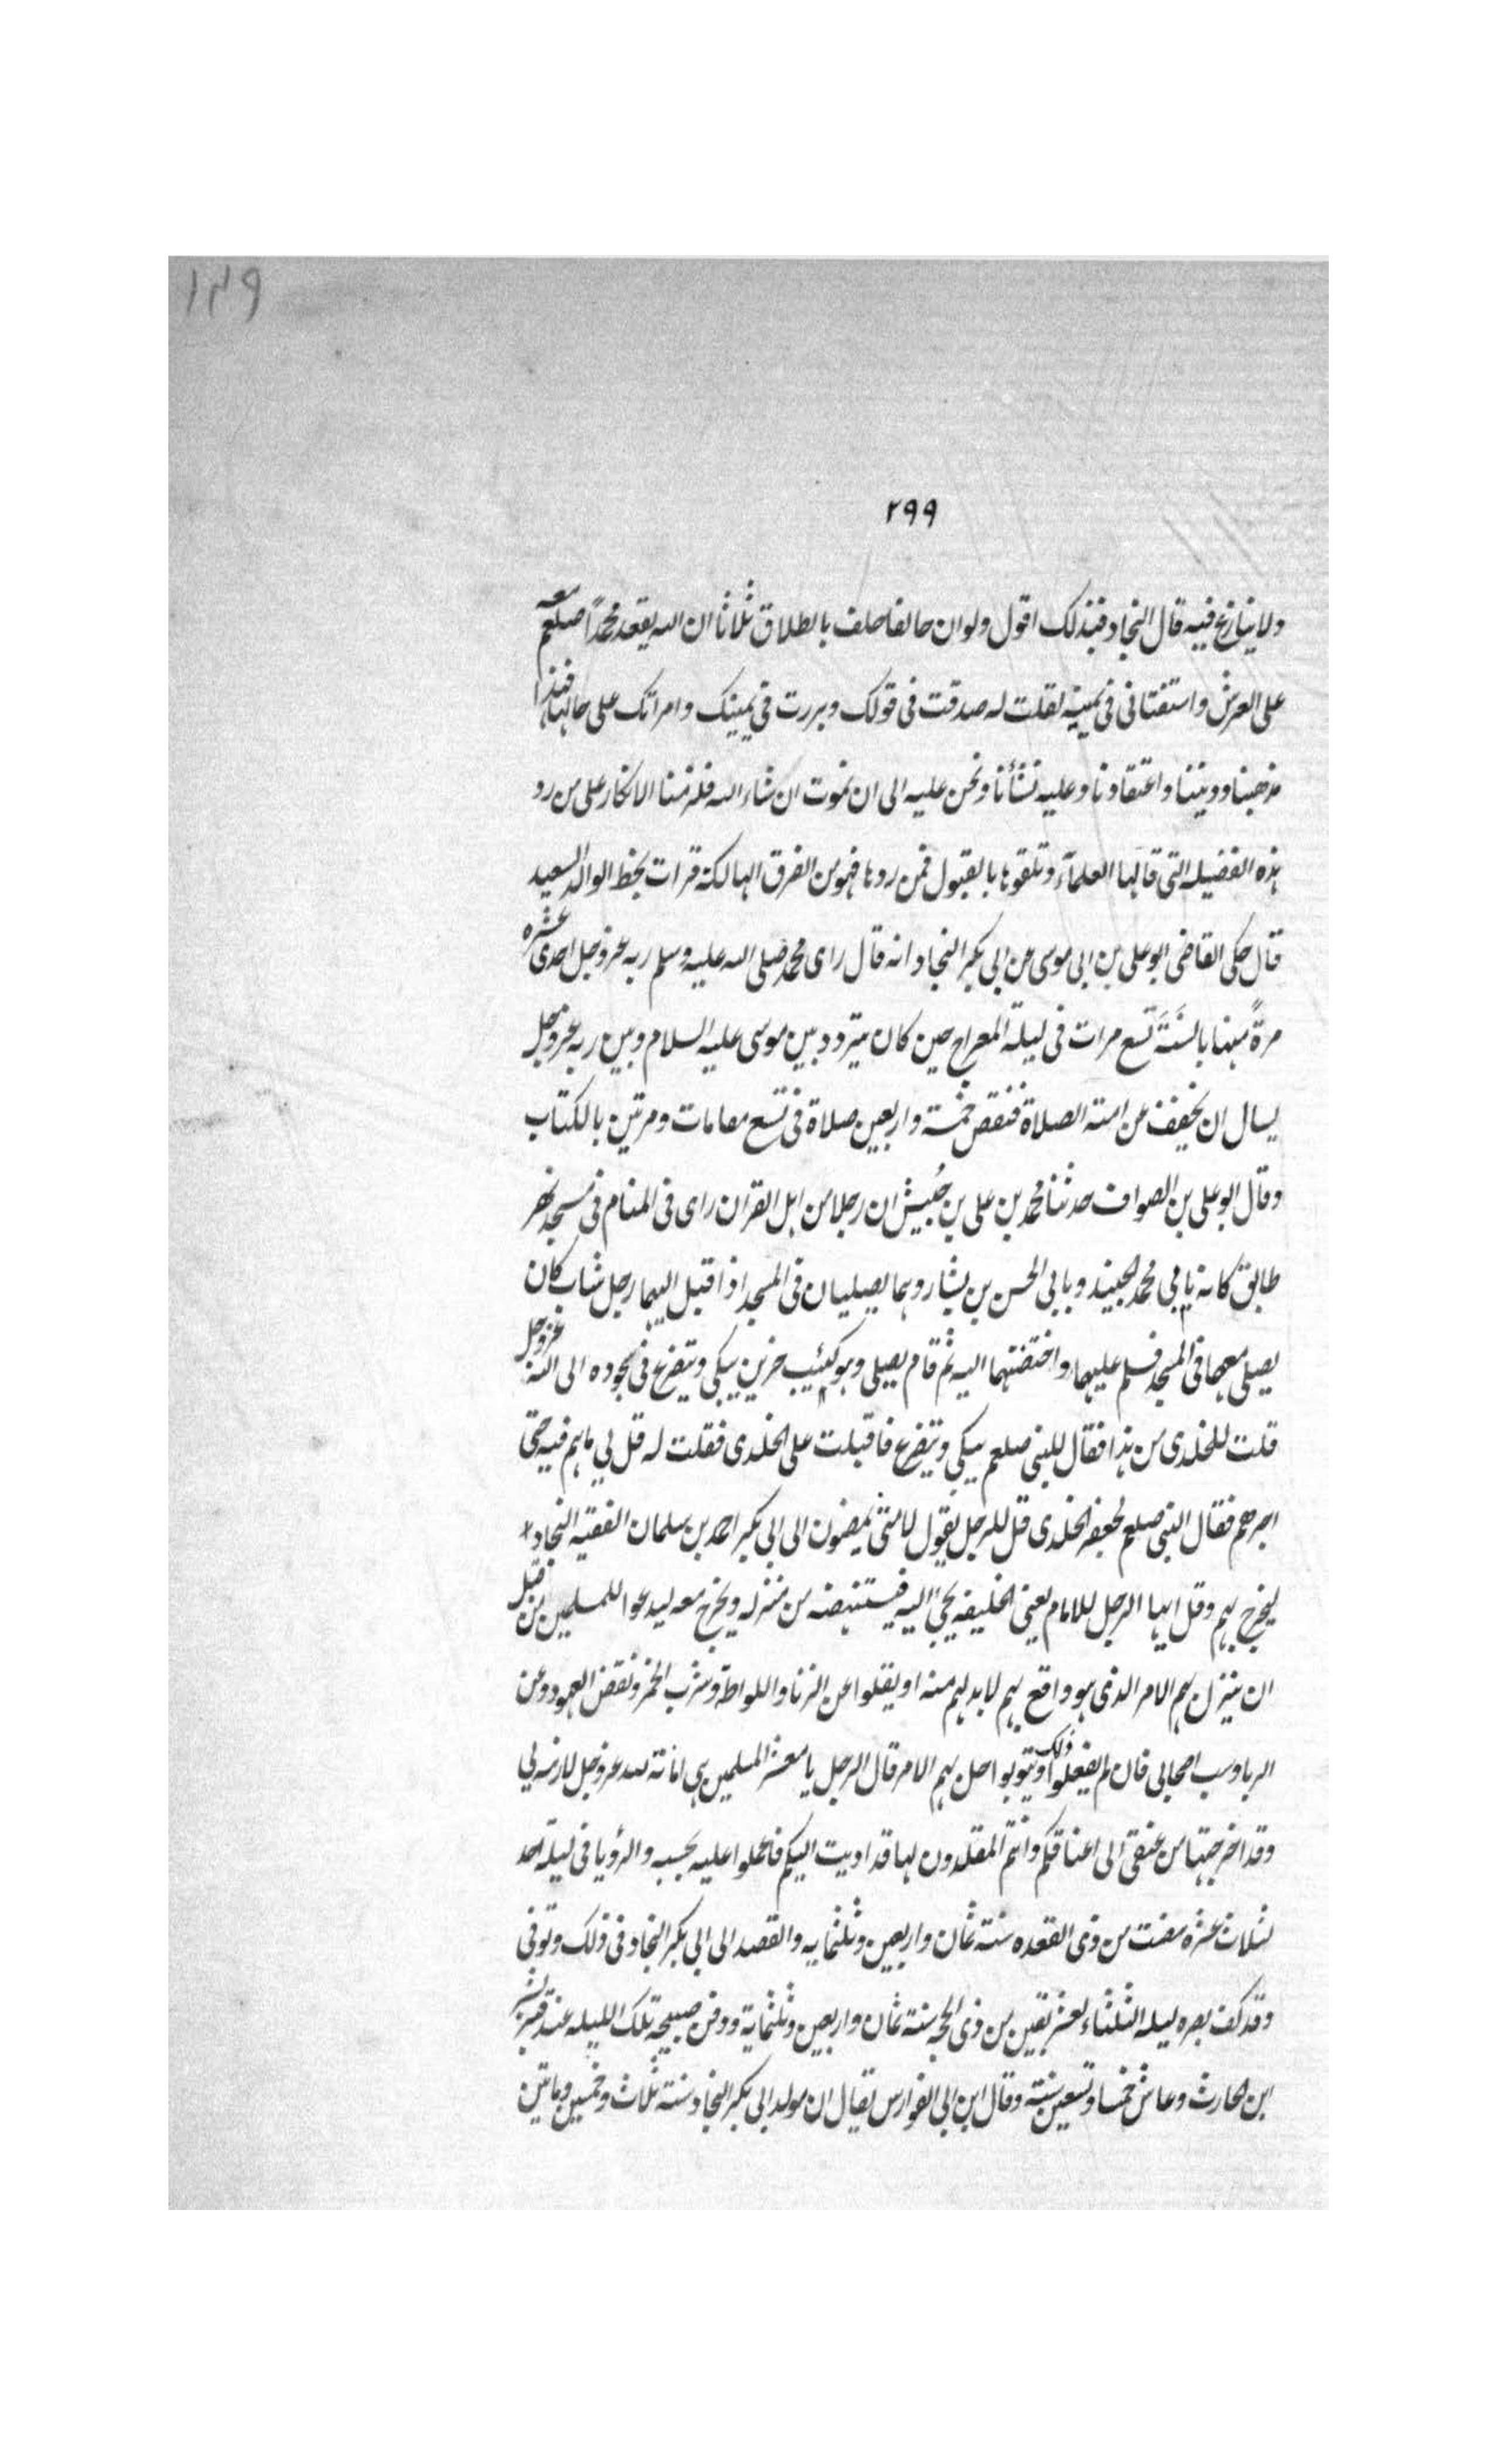 ١٤٩
٢٩٩
ولا ينازع فيه قال النجاد فبذلك اقول ولو ان حالفا حلف بالطلاق ثلاثا ان الله يقعد محمدًا صلعم معه
على العرش واستفتانى فى يمينه لقلت له صدقت فى قولك وبررت فى يمينك وامراتك على حالها فهذا
مذهبنا وديننا واعتقادنا وعليه نشأنا ونحن عليه الى ان نموت ان شاء الله فلزمنا الانكار على من رد
هذه الفضيله التى قالها العلمآء وتلقوها بالقبول فمن ردها فهو من الفرق الهالكة قرات بخط الوالد السعيد
قال حكى القاضى ابو على بن ابى موسى عن ابى بكر النجاد انه قال راى محمد صلى الله عليه وسلم ربه عز وجل احدى عشره
مرةً منها بالسنَّة تسع مرات فى ليلة المعراج حين كان يتردد بين موسى عليه السلام وبين ربه عز وجل
يسال ان يخفف عن امته الصلاة فنقص خمسة واربعين صلاة فى تسع مقامات ومرتين بالكتاب
وقال ابو على بن الصواف حدثنا محمد بن على بن حُبيش ان رجلا من اهل القران راى فى المنام فى مسجد نهر
طابق كانه يا بى محمد الجنيد وبابى الحسن بن بشار وهما يصليان فى المسجد اذ اقبل اليهما رجل شاب كان
يصلى معهما فى المسجد فسلم عليهما واختضنهما اليه ثم قام يصلى وهو كئيب حزين يبكى ويتضرع فى سجوده الى الله عز وجل
قلت للخلدى من هذا فقال للنبى صلعم يبكى ويتضرع فاقبلت على الخلدى فقلت له قل لى ما هم فيه حتى
اجرهم فقال النبى صلعم لجعفر الخلدى قل للرجل يقول لامتى يمضون الى ابى بكر احمد بن سلمان الفقيه النجاد
ليخرج بهم وقل ايها الرجل للامام يعنى الخليفه يجئ اليه فيستنهضه من منزله ويخرج معه ليدعوا للمسلمين من قبل
ان ينزل بهم الامر الذى هو واقع بهم لا بد لهم منه او يقلوا عن الزنا واللواطة وشرب الخمر ونقض العهود وعن
الربا وسب اصحابى فان لم يفعلوا ذلك ويتوبوا احل بهم الامر قال الرجل يا معشر المسلمين هى امانة لله عز وجل لازمه لى
وقد اخرجتها من عنقى الى اعناقكم وانتم المقلدون لها قد اديت اليكم فاعملوا عليه بحسبه والرؤيا فى ليلة احد
لثلاث عشرة مضت من ذى القعده سنة ثمان واربعين وثلثمايه والقصد الى ابى بكر النجاد فى ذلك وتوفى
وقد كف بصره ليله الثلثاء لعشر بقين من ذى الحجه سنة ثمان واربعين وثلثماية ودفن صبيحة تلك الليله عند قبر بشر
ابن الحارث وعاش خمسا وتسعين سنة وقال ابن ابى الفوارس يقال ان مولد ابى بكر النجاد سنة ثلاث وخمسين وماتين